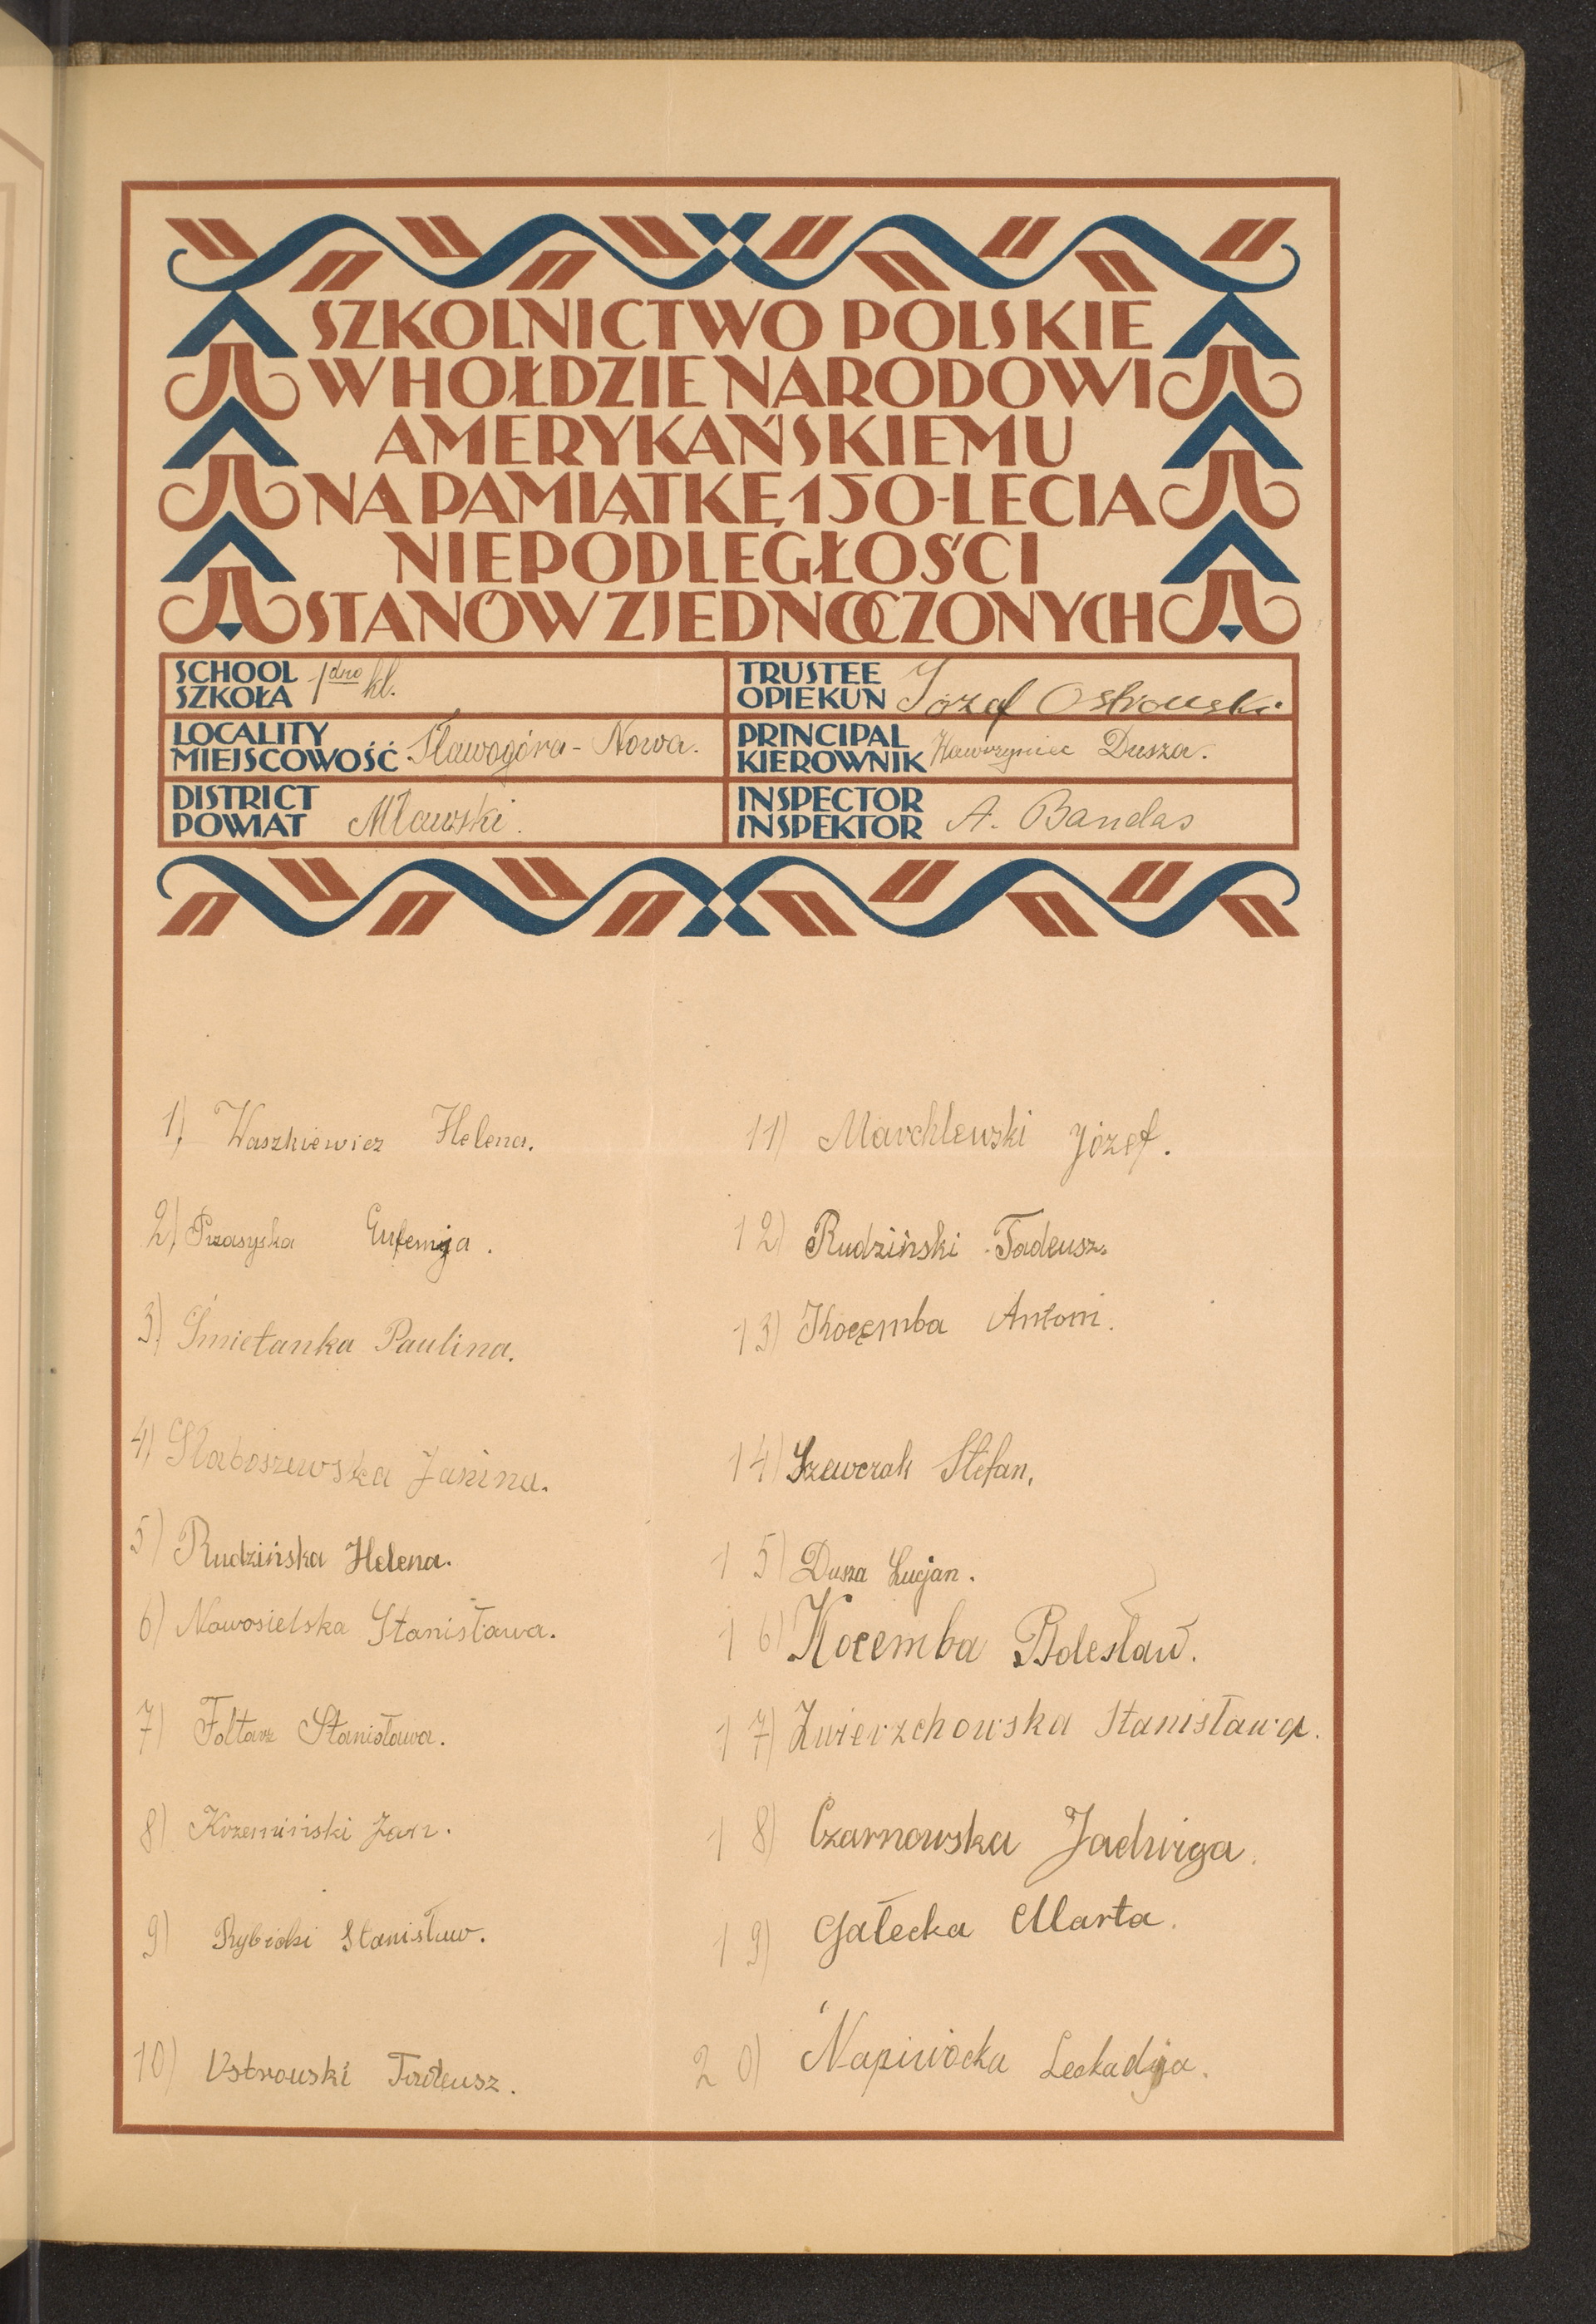 SZKOLNICTWO POLSKIE
W HOŁDZIE NARODOWI
AMERYKAŃSKIEMU
NA PAMIĄTKĘ 150-LECIA
NIEPODLEGŁOŚCI
STANÓW ZJEDNOCZONYCH
SCHOOL
SZKOŁA 1dno kl.
TRUSTEE
OPIEKUN Józef Ostrowski
LOCALITY
MIEJSCOWOŚĆ Sławogóra-Nowa.
PRINCIPAL
KIEROWNIK Wawrzyniec Dusza.
DISTRICT
POWIAT Mławski.
INSPECTOR
INSPEKTOR A. Bandas
1) Waszkiewicz Helena.
2) Przasyska Eufemja.
3) Śmietanka Paulina.
4) Słaboszewska Janina.
5) Rudzińska Helena.
6) Nowosielska Stanisława.
7) Foltarz Stanisława.
8) Krzemiński Jan.
9) Rybicki Stanisław.
10) Ostrowski Tadeusz.
11) Marchlewski Józef.
12) Rudziński Tadeusz.
13) Kocęmba Antoni.
14) Szewczak Stefan.
15) Dusza Lucjan.
16) Kocemba Bolesław.
17) Zwierzchowska Stanisława.
18) Czarnowska Jadwiga.
19) Gałecka Marta.
20) Napiwocka Leokadja.